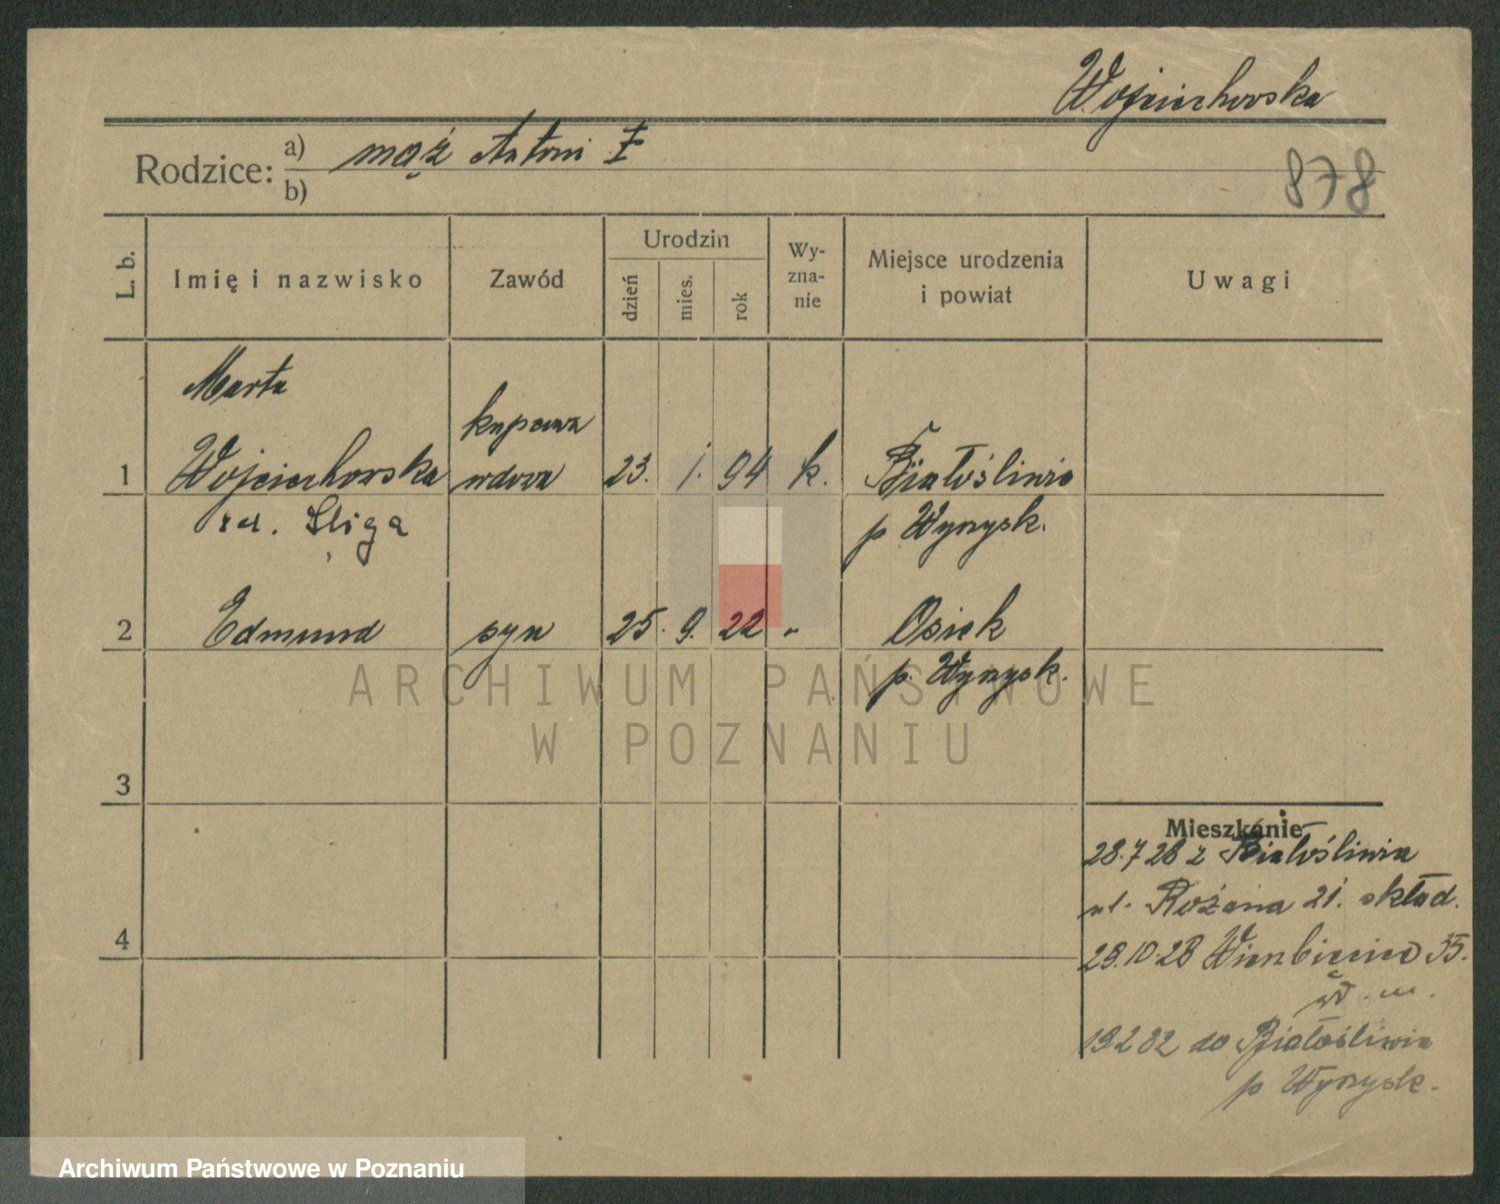 Wojciechowska
Rodzice: a) mąż Antoni †
b)
878
L. b. Imię i nazwisko Zawód Urodzin dzień mies. rok Wy-zna-nie Miejsce urodzenia i powiat Uwagi
Marta
kupcowa
1 Wojciechowska wdowa 23. 1. 94 k. Białośliwie
rd. Śliga p Wyrzysk.
2 Edmund syn 25. 9. 22 " Osiek
p. Wyrzysk.
ARCHIWUM PAŃSTWOWE
W POZNANIU
3
Mieszkanie
28.7 28 z Białośliwia
ul. Różana 21. skład.
4
29.10.28 Wierzbięcice 35.
19 2 32 do Białośliwia
p Wyrzysk.
Archiwum Państwowe w Poznaniu